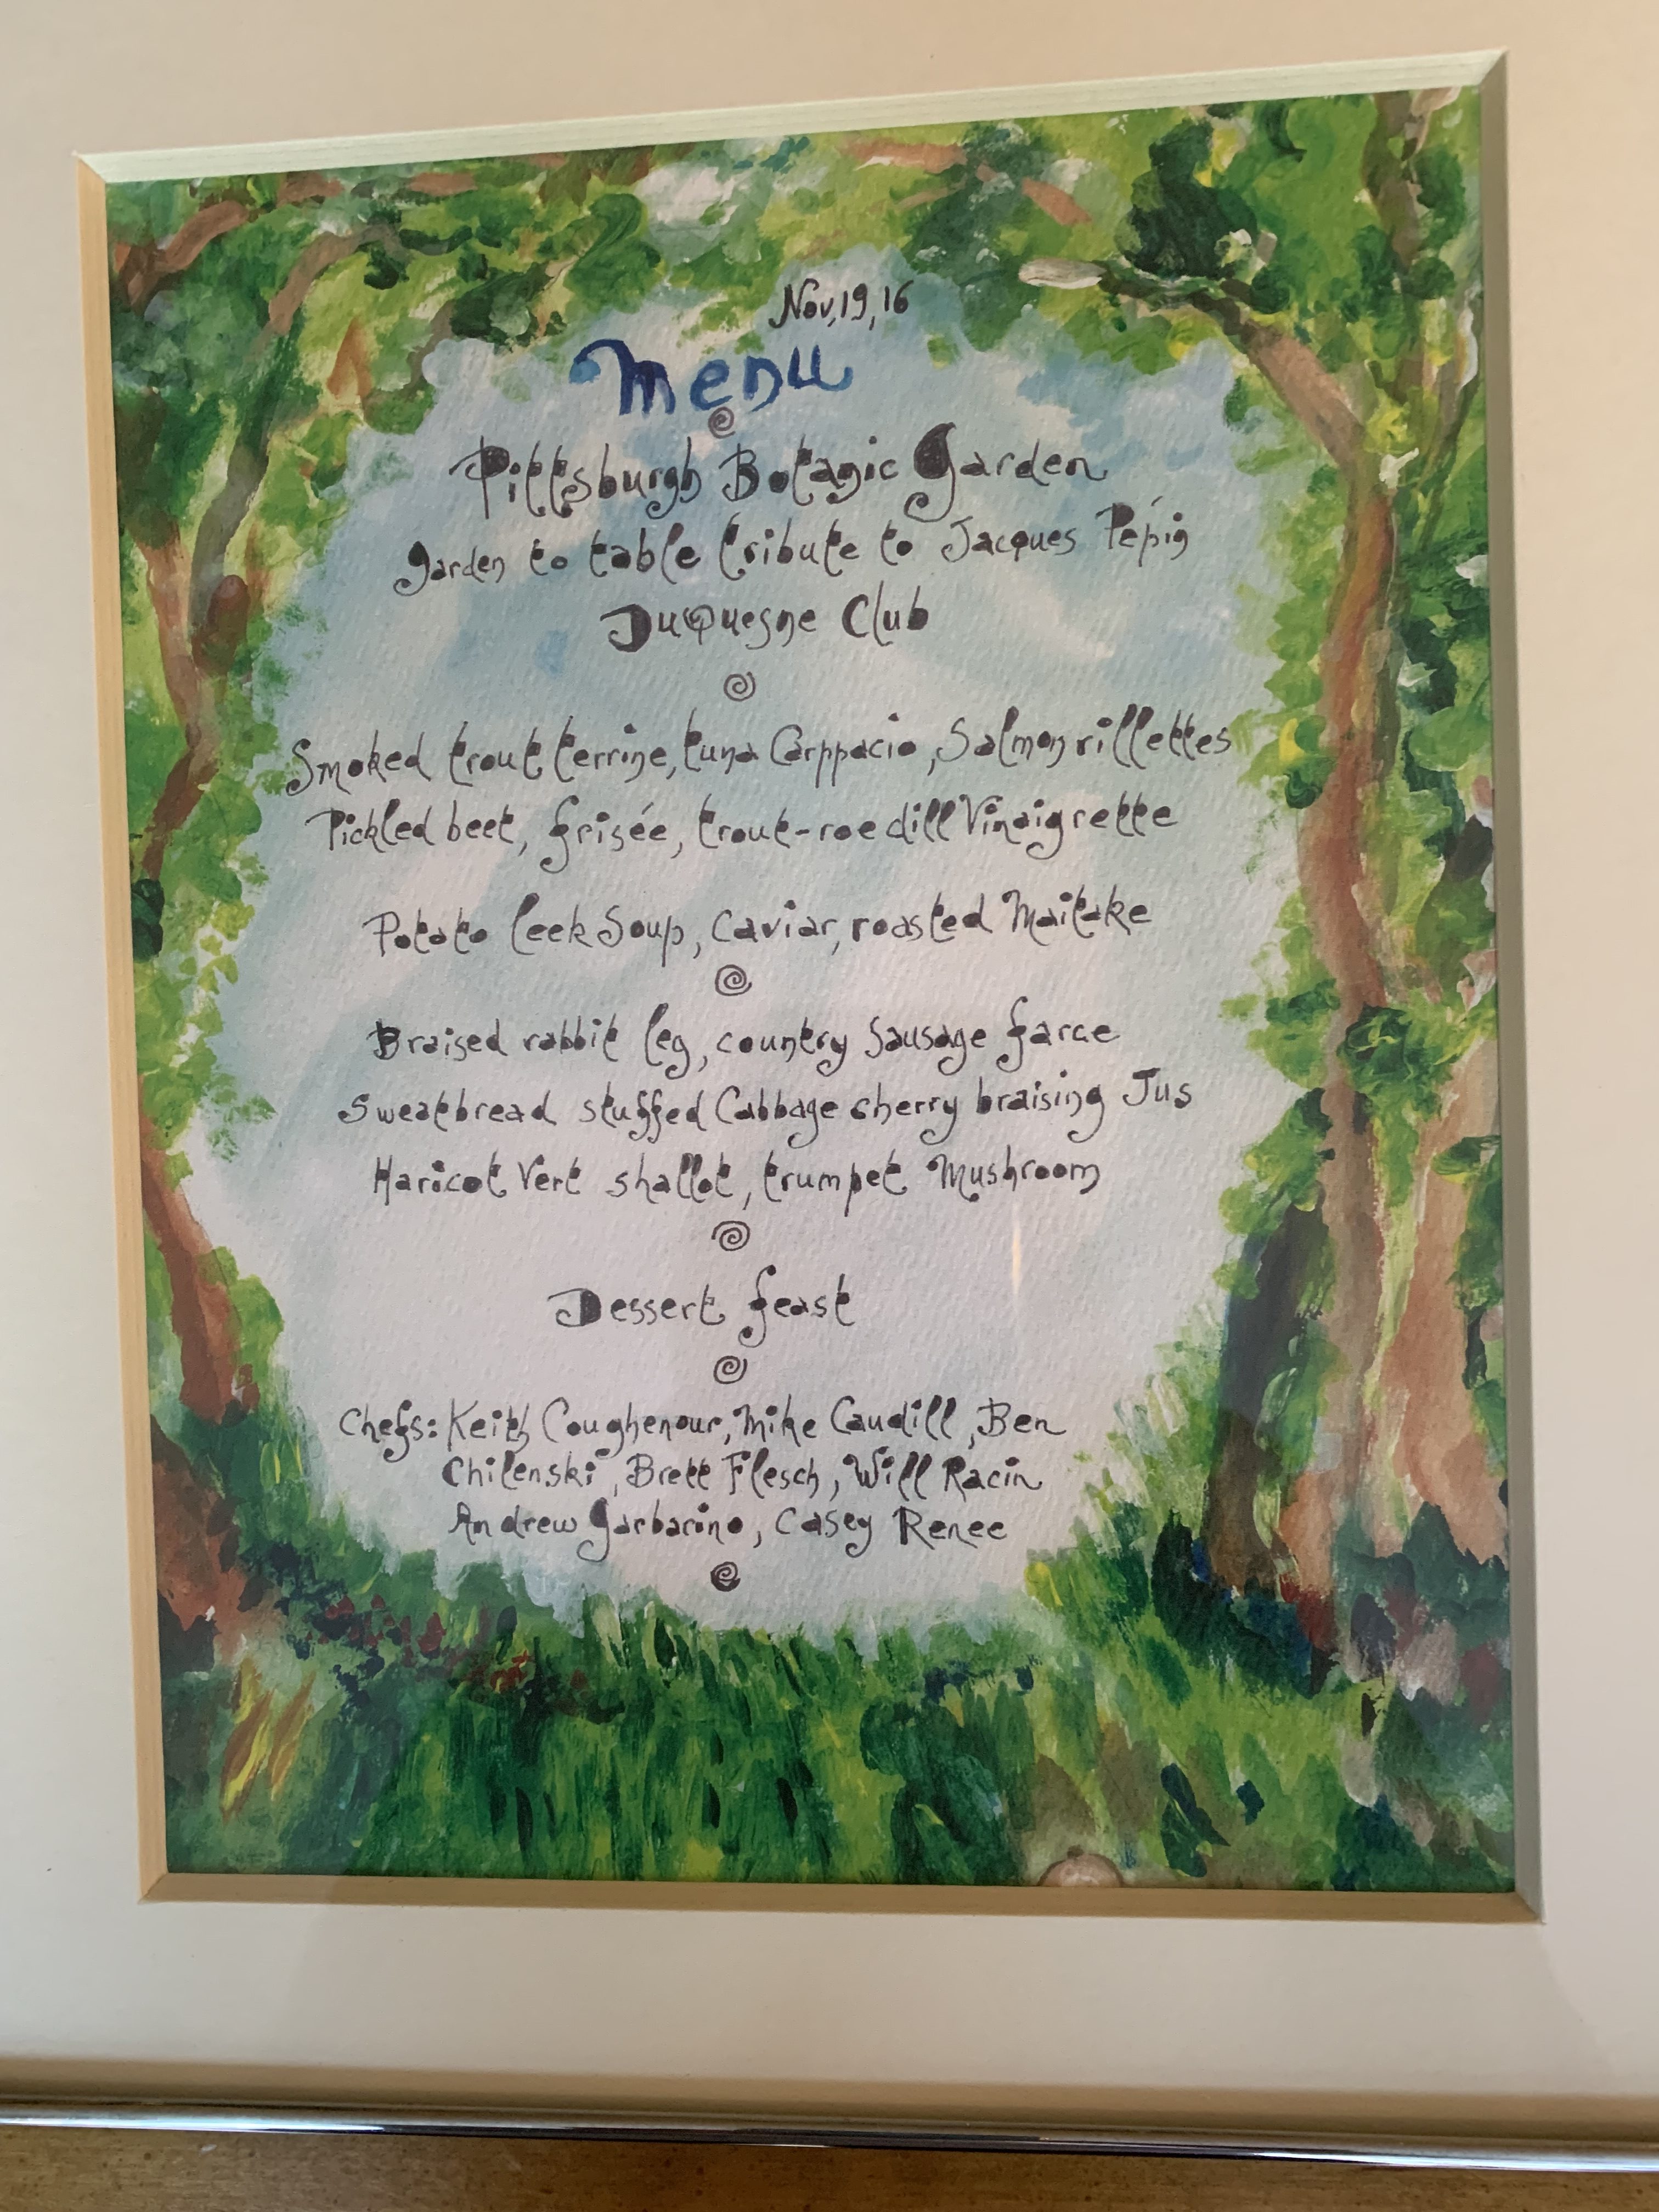 Nov, 19, 16
Menu
Pittsburgh Botanic Garden
garden to table tribute to Jacques Pépin
DuQuesne Club
Smoked trout terrine, tuna Carppacio, Salmon rillettes
Pickled beet, frisée, trout-roe dill Vinaigrette
Potato leek Soup, Caviar, roasted Maitake
Braised rabbit leg, country Sausage farce
Sweatbread stuffed Cabbage cherry braising Jus
Haricot Vert shallot, trumpet Mushroom
Dessert feast
Chefs: Keith Coughenour, Mike Caudill, Ben
Chilenski, Brett Flesch, Will Racin
Andrew Garbarino, Casey Renee